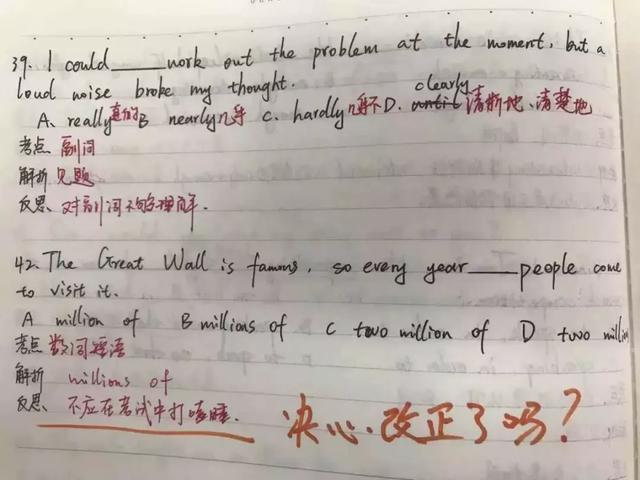 39. I could ____ work out the problem at the moment, but a
loud noise broke my thought.
A. really真的 B nearly几乎 C. hardly几乎不 D. clearly 清晰地、清楚地
考点 副词
解析 见题
反思、对副词不够理解.
42. The Great Wall is famous, so every year ____ people come
to visit it.
A million of B millions of C two million of D two million
考点 数词短语
解析 millions of
反思、不应在考试中打瞌睡.
决心、改正了吗?